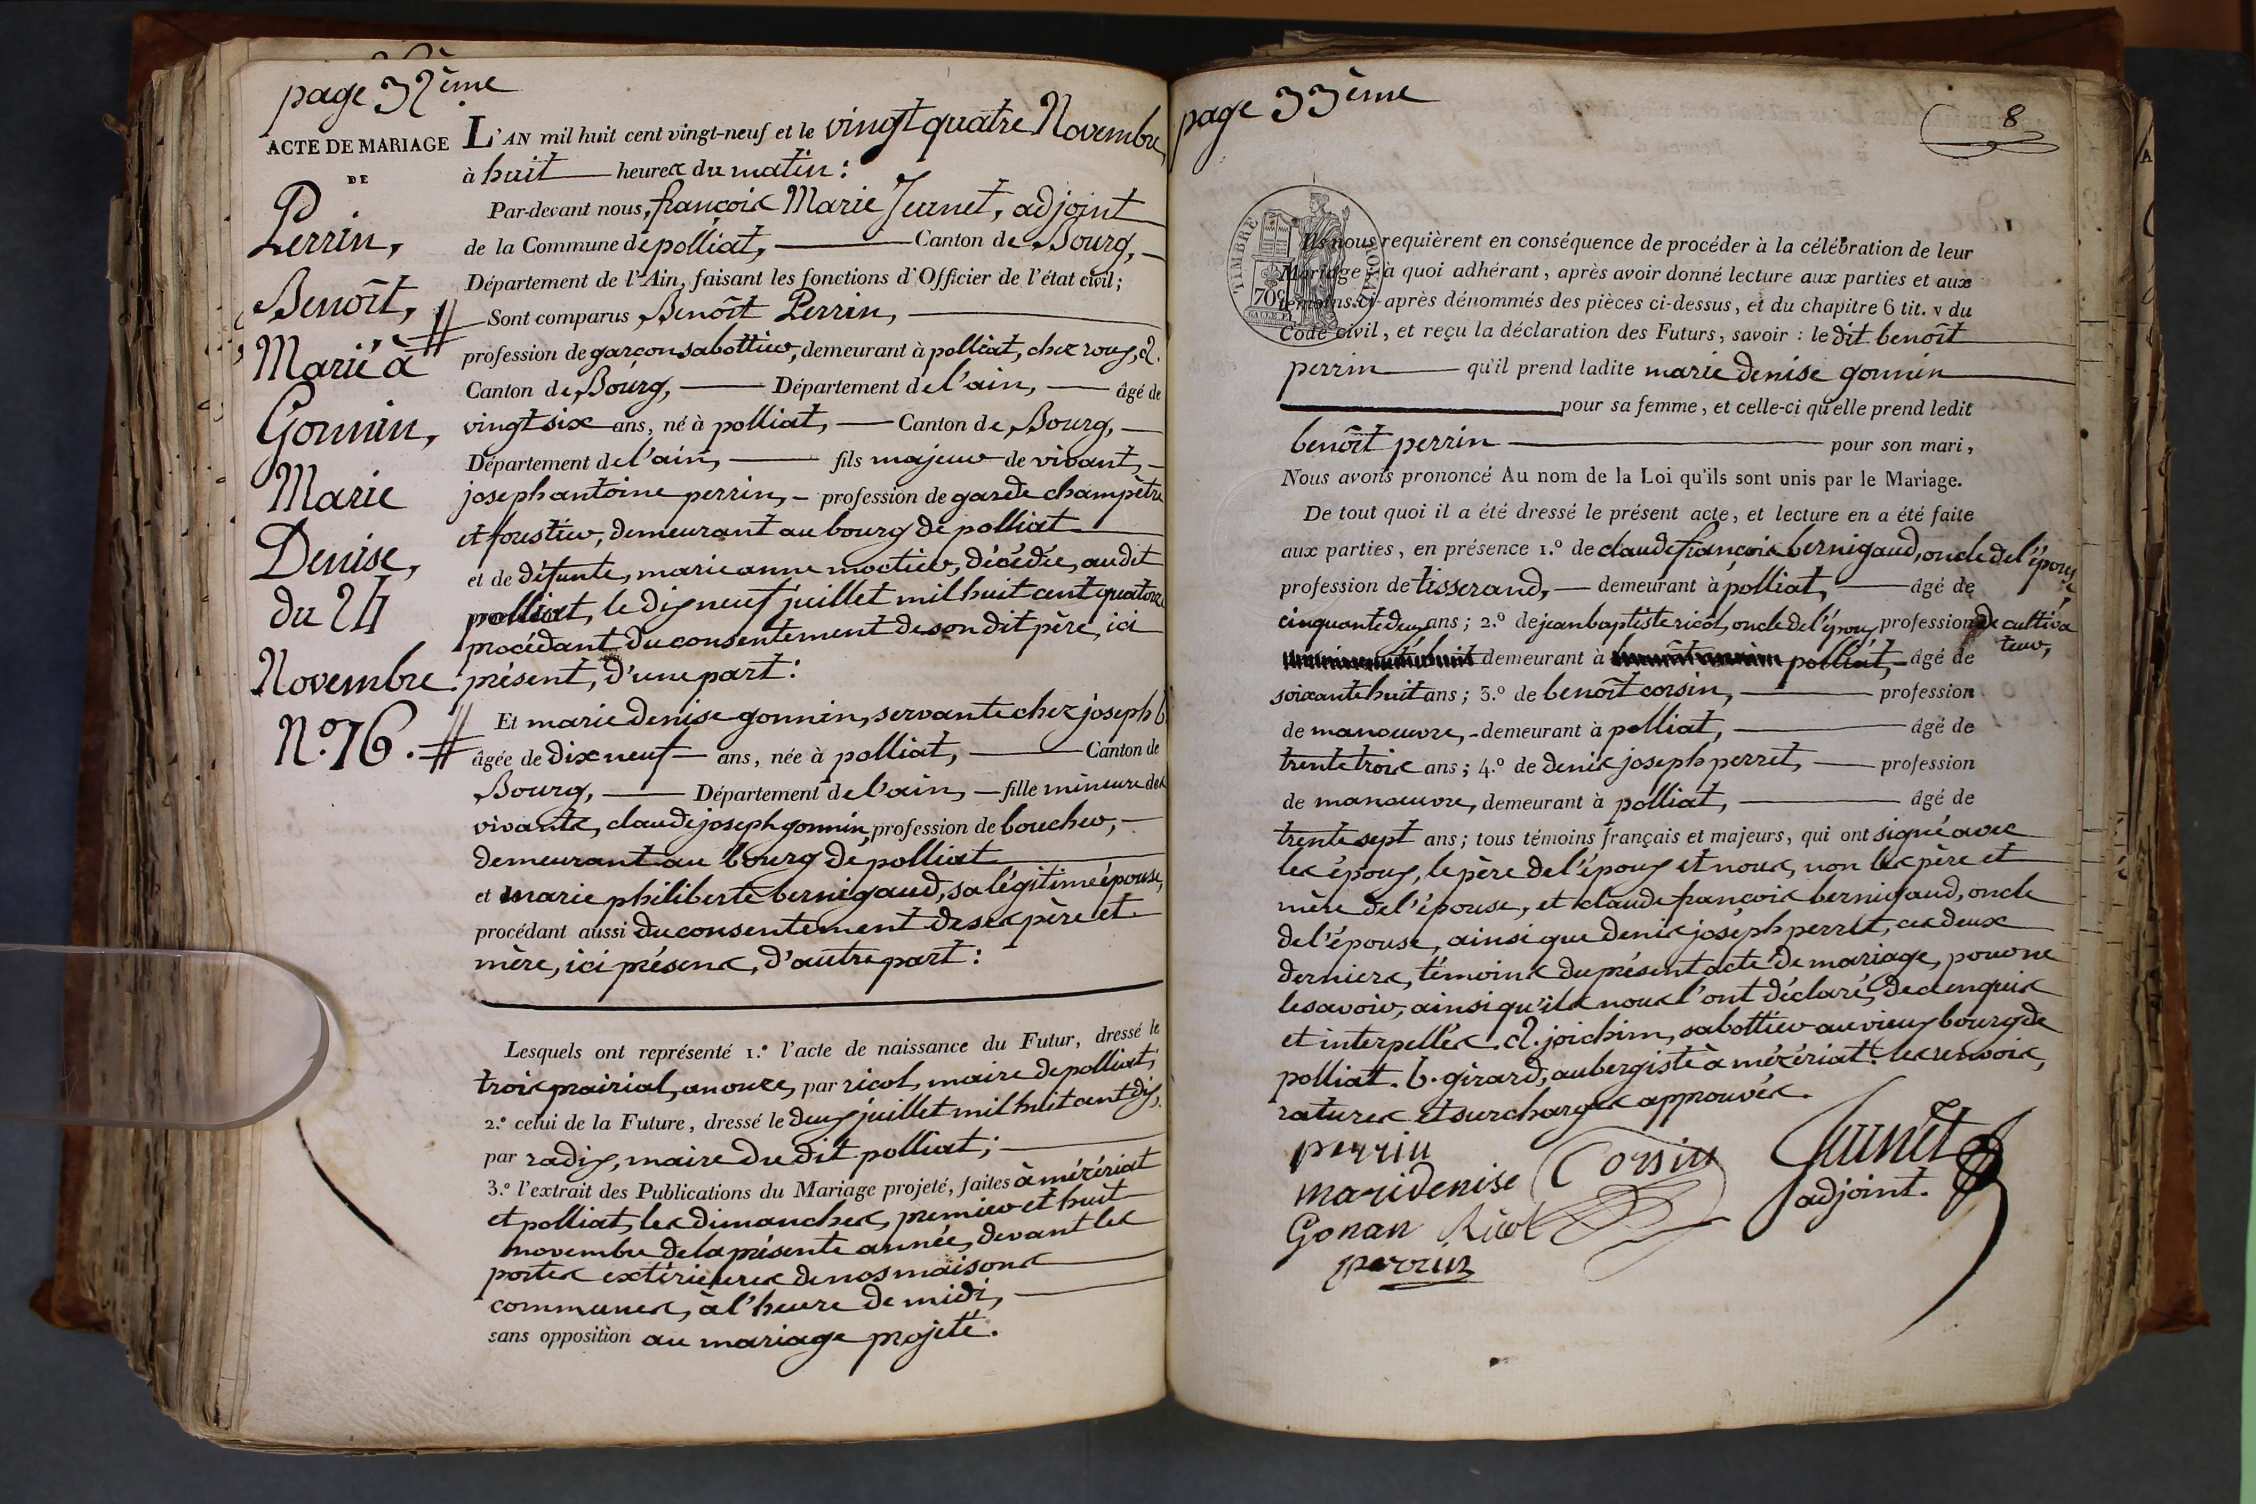 page 32ème
ACTE DE MARIAGE
DE
Perrin,
Benoît,
Marié à
Gonnin,
Marie
Denise,
du 24
Novembre
N.º 16.
L'AN mil huit cent vingt-neuf et le vingt quatre Novembre,
à huit heures du matin :
Par-devant nous, françois Marie Jeunet, adjoint
de la Commune de polliat, Canton de Bourg,
Département de l'Ain, faisant les fonctions d'Officier de l'état civil ;
Sont comparus Benoît Perrin,
profession de garçon sabottier, demeurant à polliat, chez roux, a.
Canton de Bourg, Département de l'ain, âgé de
vingt six ans, né à polliat, Canton de Bourg,
Département de l'ain, fils majeur de vivant,
joseph antoine perrin, profession de garde champêtre
et forestier, demeurant au bourg de polliat
et de défunte, marie anne moctier, décédée, au dit
polliat, le dix neuf juillet mil huit cent quatorze
procédant du consentement de son dit père, ici
présent, d'une part :
Et marie denise gonnin, servante chez joseph b
âgée de dix neuf ans, née à polliat, Canton de
Bourg, Département de l'ain, fille mineure des
vivants, claude joseph gonnin, profession de boucher,
demeurant au bourg de polliat
et marie philiberte bernigaud, sa légitime épouse,
procédant aussi du consentement de ses père et
mère, ici présens, d'autre part :
Lesquels ont représenté 1.º l'acte de naissance du Futur, dressé le
trois prairial, an onze, par ricol, maire de polliat ;
2.º celui de la Future, dressé le deux juillet mil huit cent dix,
par radix, maire du dit polliat ;
3.º l'extrait des Publications du Mariage projeté, faites à mézériat
et polliat, les dimanches, premier et huit
novembre de la présente année, devant les
portes extérieures de nos maisons
communes, à l'heure de midi,
sans opposition au mariage projeté.
page 33ème
8
TIMBRE ROYAL
70c
Ils nous requièrent en conséquence de procéder à la célébration de leur
Mariage ; à quoi adhérant, après avoir donné lecture aux parties et aux
témoins ci-après dénommés des pièces ci-dessus, et du chapitre 6 tit. v du
Code civil, et reçu la déclaration des Futurs, savoir : le dit benoît
perrin qu'il prend ladite marie denise gonnin
pour sa femme, et celle-ci qu'elle prend ledit
benoît perrin pour son mari,
Nous avons prononcé Au nom de la Loi qu'ils sont unis par le Mariage.
De tout quoi il a été dressé le présent acte, et lecture en a été faite
aux parties, en présence 1.º de claude françois bernigaud, oncle de l'épouse
profession de tisserand, demeurant à polliat, âgé de
cinquante deux ans ; 2.º de jean baptiste ricol, oncle de l'époux profession de cultiva
teur,
demeurant à polliat, âgé de
soixante huit ans ; 3.º de benoît corsin, profession
de manœuvre, demeurant à polliat, âgé de
trente trois ans ; 4.º de denis joseph perret, profession
de manœuvre, demeurant à polliat, âgé de
trente sept ans ; tous témoins français et majeurs, qui ont signé avec
les époux, le père de l'époux et nous, non les père et
mère de l'épouse, et claude françois bernigaud, oncle
de l'épouse, ainsi que denis joseph perret, ces deux
derniers, témoins du présent acte de mariage, pour ne
le savoir, ainsi qu'ils nous l'ont déclaré, de ce enquis
et interpellés. a. joichim, sabottier au vieux bourg de
polliat. b. girard, aubergiste à mézériat. les renvois,
ratures et surcharges approuvés.
perrin
maridenise
Gonan
Corsin
Ricol
perrin
Jeunet
adjoint.